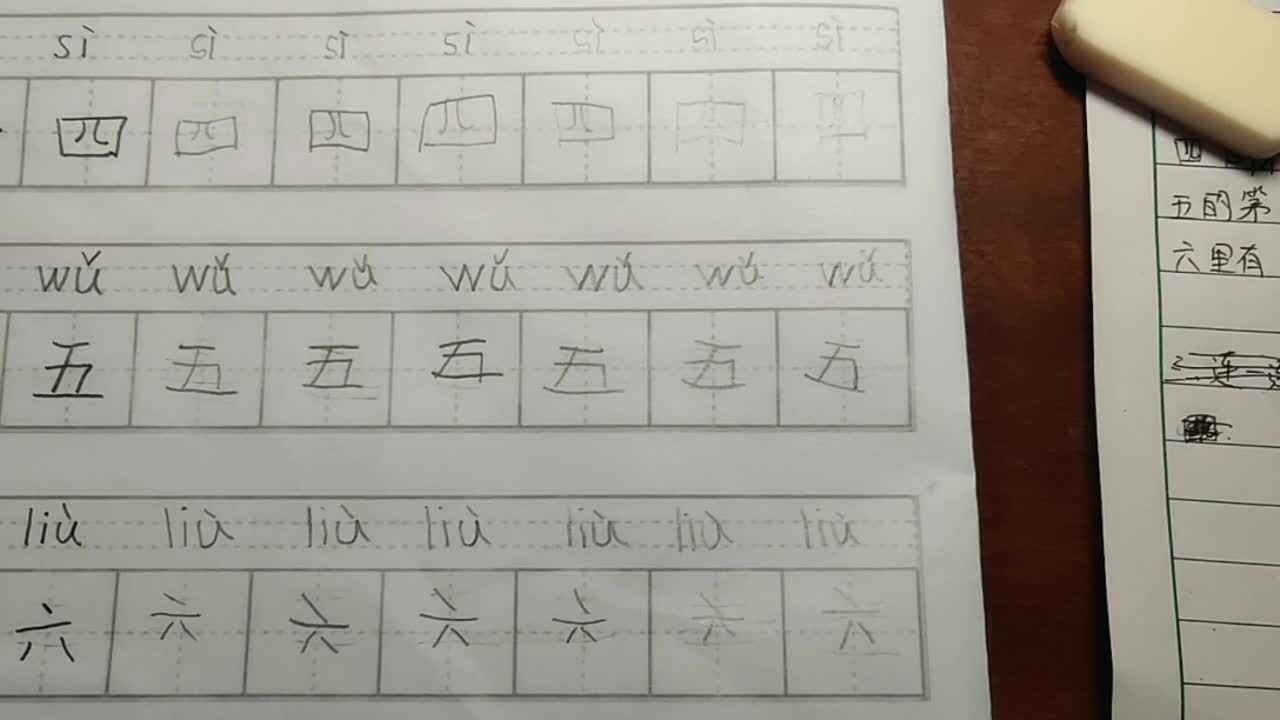 sì sì sì sì sì sì sì
四 四 四 四 四 四 四
wǔ wǔ wǔ wǔ wǔ wǔ wǔ
五 五 五 五 五 五 五
liù liù liù liù liù liù liù
六 六 六 六 六 六 六
四
五的第
六里有